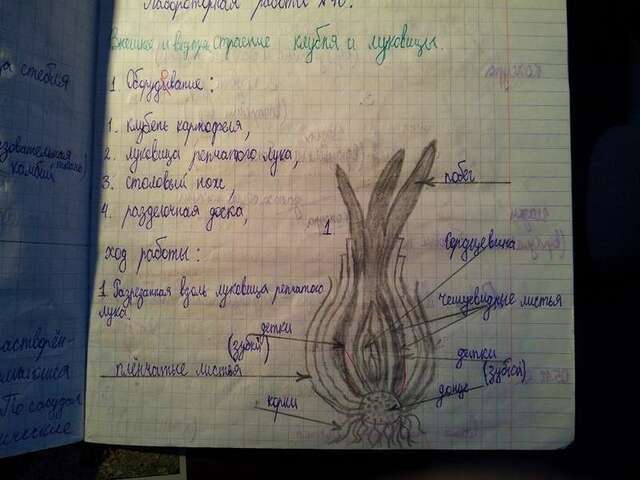 Лабораторная работа №
Внешнее и внутр строение клубня и луковицы.
1 Оборудывание:
1. клубень картофеля,
2. луковица репчатого лука,
3. столовый нож,
4. разделочная доска,
ход работы:
1. Разрезанная вдоль луковица репчатого
лука.
1.
побег
Сердцевина
чешуевидные листья
детки
(зубки)
детки
(зубки)
плёнчатые листья
донце
корни
а стебля
камбий
астворён-
По сосудам
ические